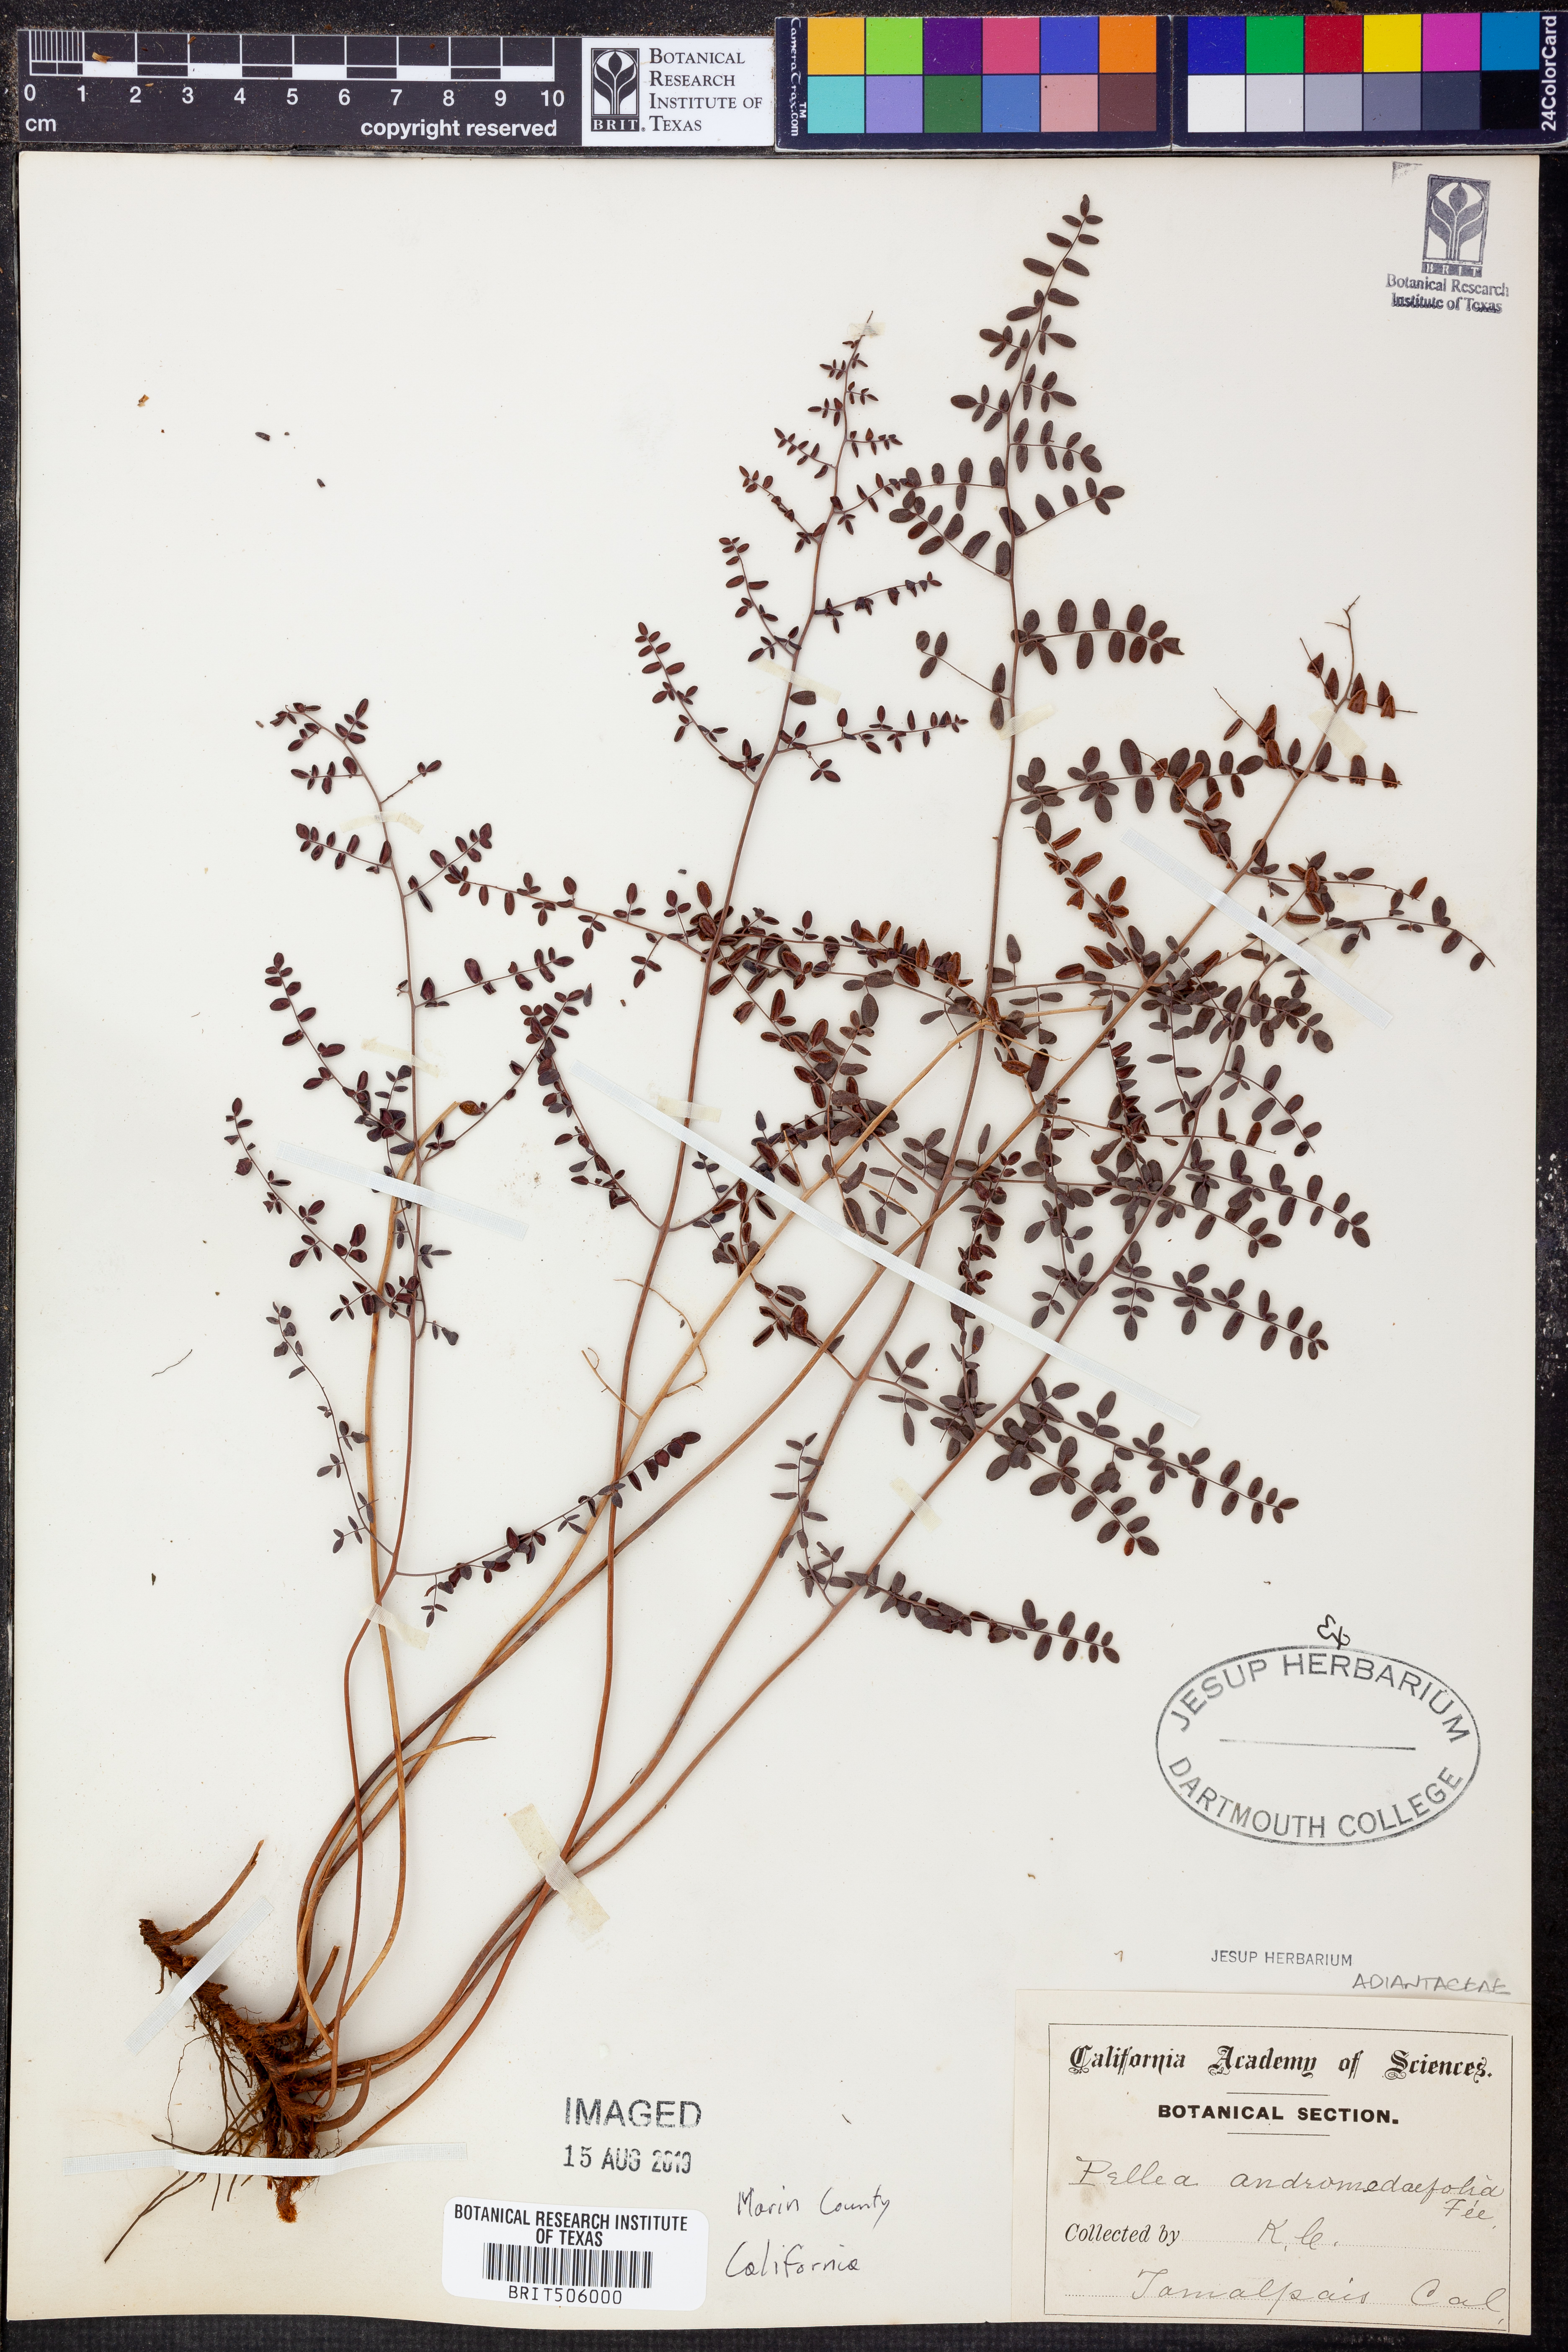 0 1 2 3 4 5 6 7 8 9 10
cm
copyright reserved
BRIT.
BOTANICAL
RESEARCH
INSTITUTE OF
TEXAS
CameraTrax.com
TM
24ColorCard
BRIT
Botanical Research
Institute of Texas
Ex
JESUP HERBARIUM
DARTMOUTH COLLEGE
JESUP HERBARIUM
ADIANTACEAE
California Academy of Sciences.
BOTANICAL SECTION.
Pellea andromedaefolia
Fée,
Collected by K. C.
Tamalpais Cal,
IMAGED
15 AUG 2019
Marin County
California
BOTANICAL RESEARCH INSTITUTE
OF TEXAS
BRIT506000